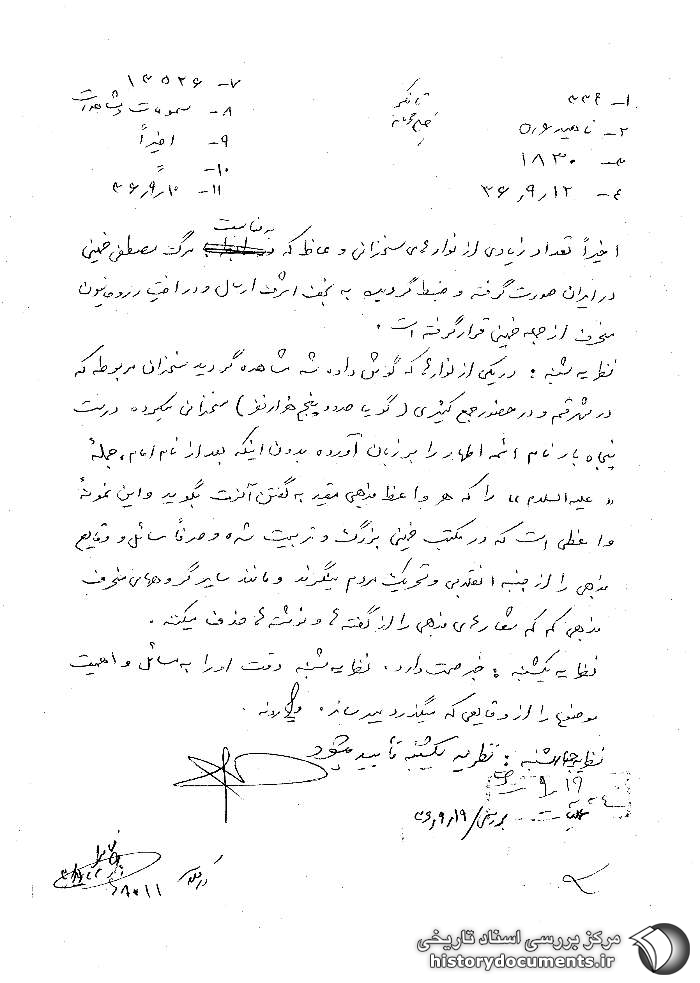 ۱- ۳۳۶
۲- ناهید ۵۰۶
۳- ۱۸۳۰
۴- ۳۶٫۹٫۱۲
۷- ۱۳۵۲۶
۸- مسموعات و مشاهدات
۹- اخیراً
۱۰- "
۱۱- ۳۶٫۹٫۱۰
اخیراً تعداد زیادی از نوارهای سخنرانی وعاظ که بمناسبت مرگ مصطفی خمینی
در ایران صورت گرفته و ضبط گردیده به نجف اشرف ارسال و در اختیار روحانیون
منحرف از جمله خمینی قرار گرفته است.
نظریه شنبه: در یکی از نوارهائی که گوش داده شد مشاهده گردید سخنران مربوطه که
در شهر قم و در حضور جمع کثیری (گویا صد و پنج هزار نفر) سخنرانی میکرده درست
پنجاه بار نام ائمه اطهار را بر زبان آورده بدون اینکه بعد از نام امام، جملهٔ
«علیه السلام» را که هر واعظ مذهبی مقید به گفتن آنست بگوید و این نمونهٔ
واعظی است که در مکتب خمینی بزرگ و تربیت شده و صرفاً مسائل و وقایع
مذهبی را از جنبه انقلابی و تحریک مردم میگیرند و مانند سایر گروههای منحرف
مذهبی کم کم شعارهای مذهبی را از گفته ها و نوشته ها حذف میکنند.
نظریه یکشنبه: خبر صحت دارد. نظریه شنبه دقت او را به مسائل و اهمیت
موضوع را از وقایعی که میگذرد میرساند.
نظریه چهارشنبه: نظریه یکشنبه تأیید میشود
۹٫۱۹
۳۶٫۹٫۱۹
مرکز بررسی اسناد تاریخی
historydocuments.ir